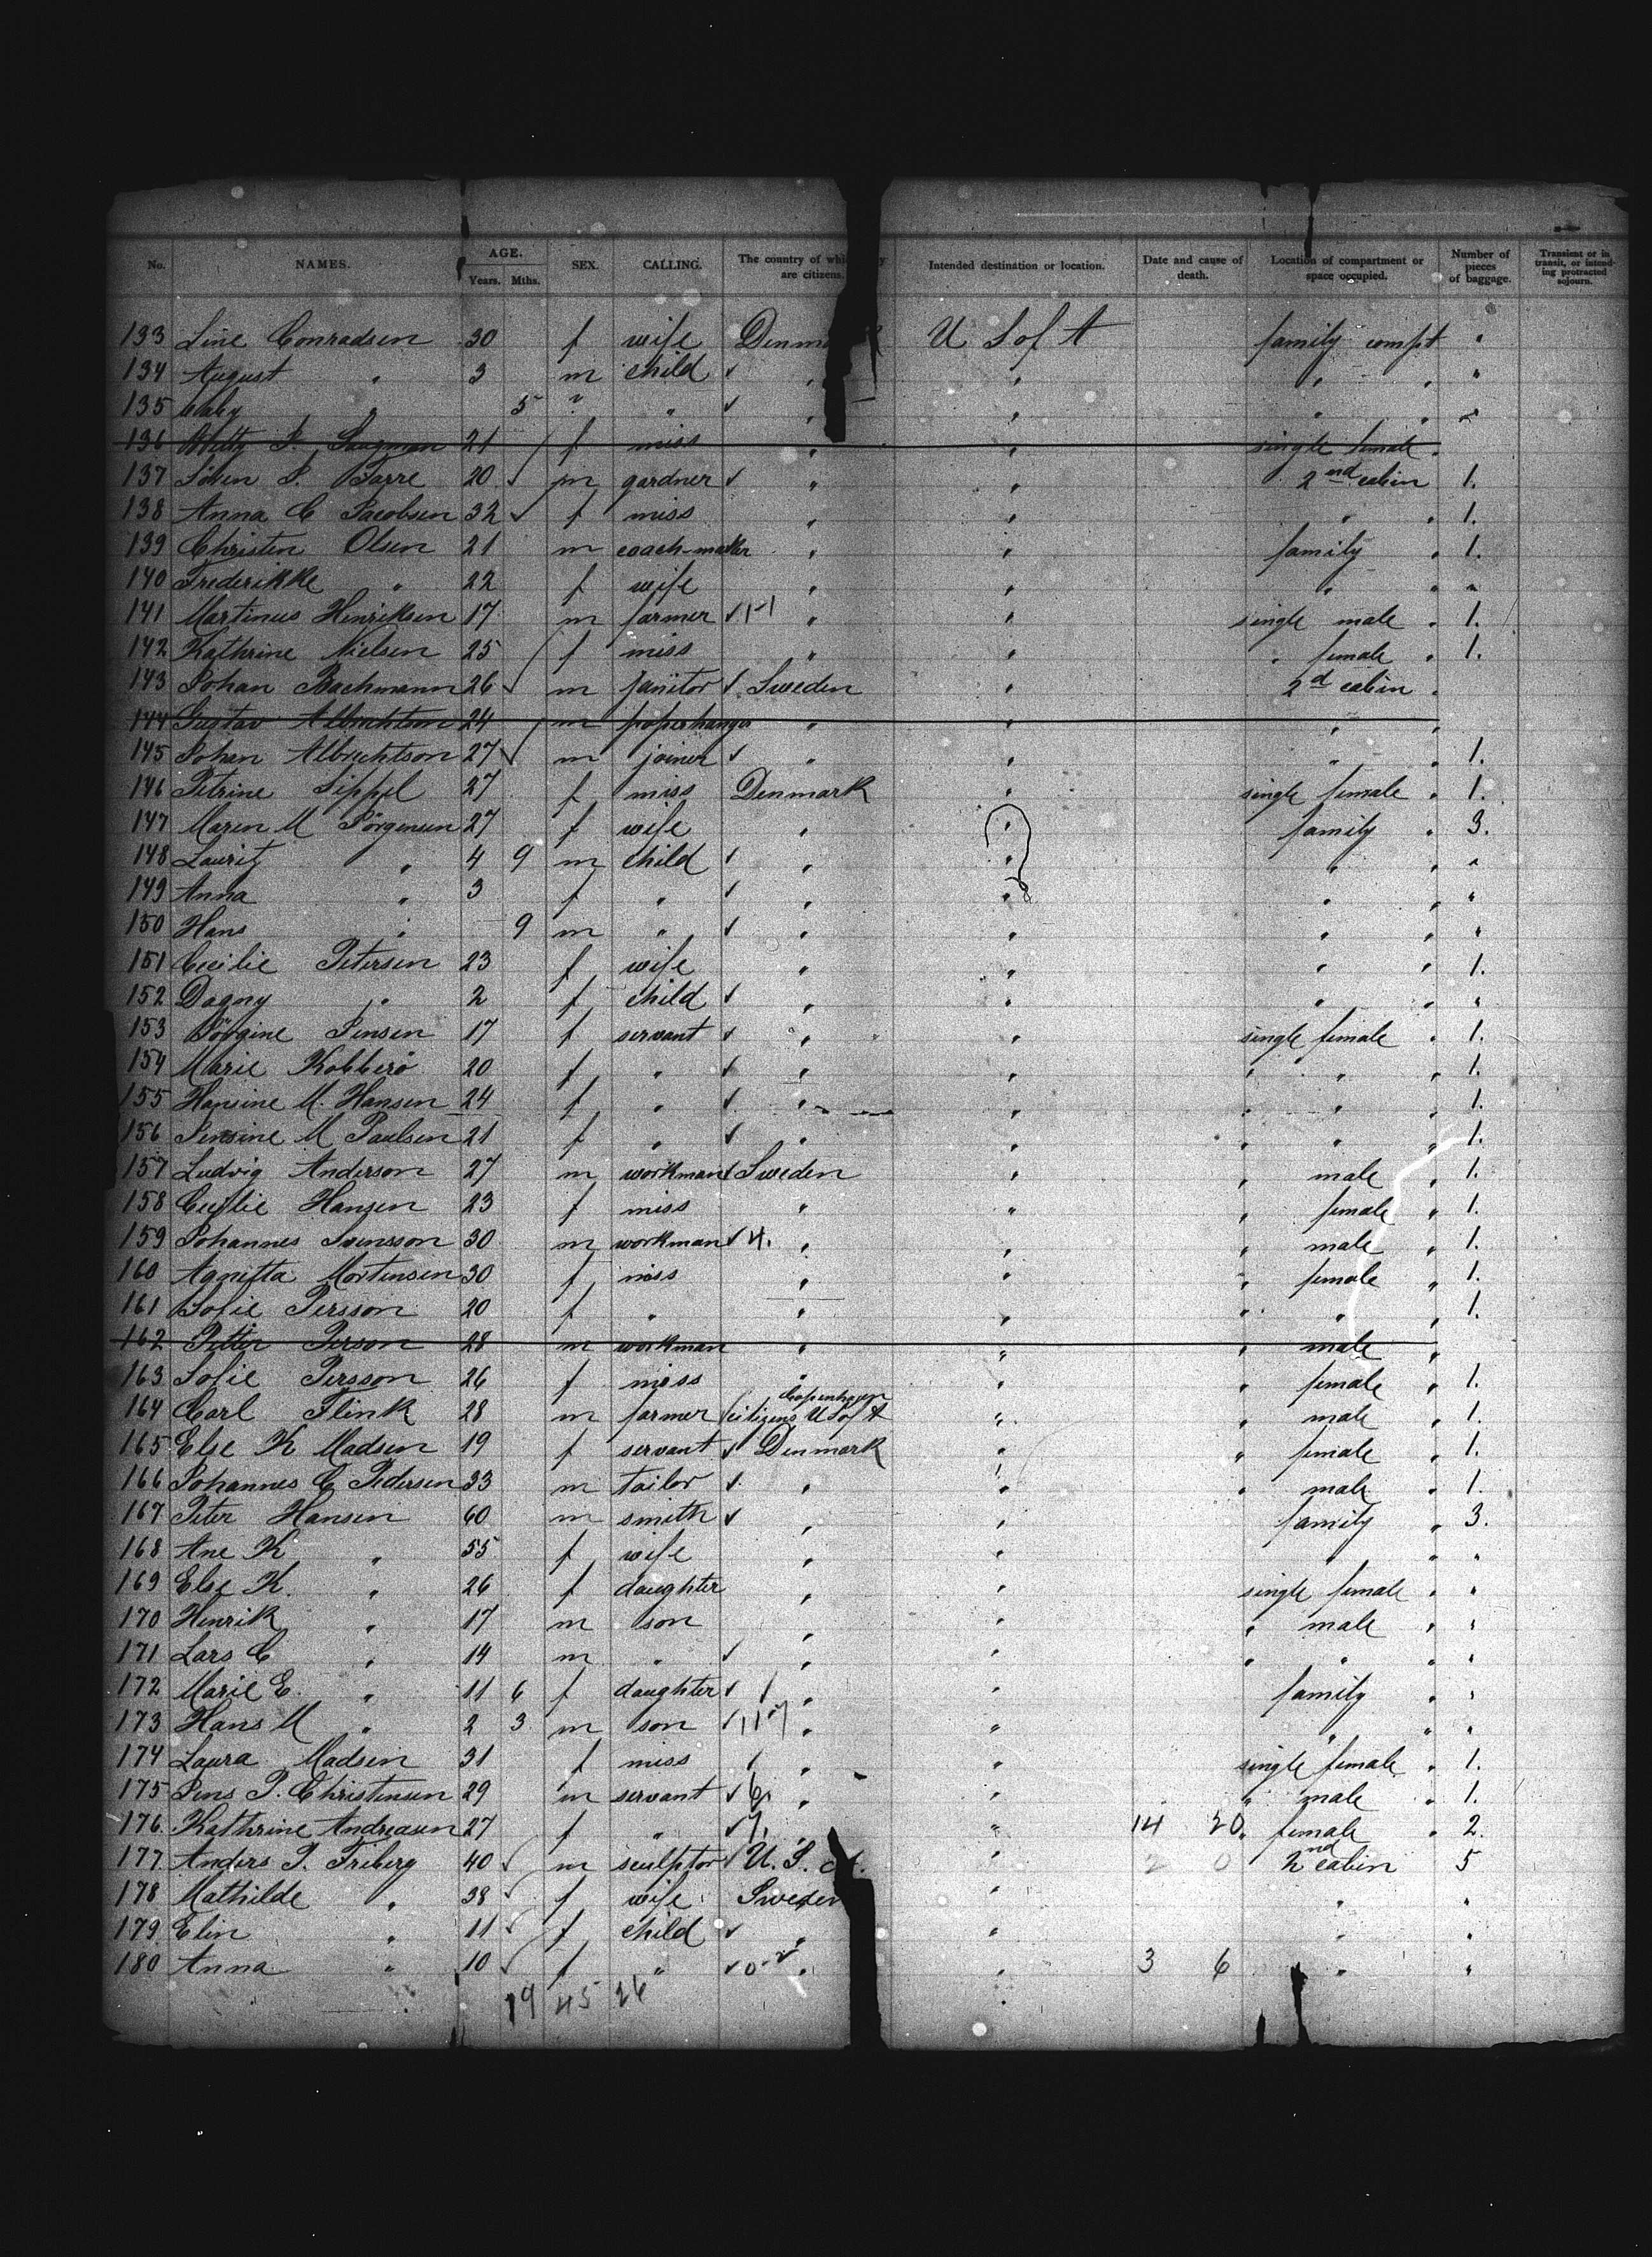 No. NAMES. AGE. Years. Mths. SEX. CALLING. The country of are citizens. Intended destination or location. Date and cause of death. Location of compartment or space occupied. Number of pieces of baggage. Transient or in transit, or intending protracted sojourn.
133 Line Conradsen 30 f wife U S of A family compt "
134 August " 3 m child ✓ " " " " "
135 baby " 5 ? " ✓ " " " " "
136 21 f miss " " single female "
137 Sören P. Barre 20 ✓ m gardner ✓ " " 2nd cabin 1.
138 Anna C Jacobsen 32 ✓ f miss " " " " 1.
139 Christen Olsen 21 m coach-maker " " family " 1.
140 Frederikke " 22 f wife " " " " "
141 Martinus Henriksen 17 m farmer ✓ 1-1 " " single male " 1.
142 Kathrine Nielsen 25 f miss " " " female " 1.
143 Johan Bachmann 26 ✓ m janitor ✓ Sweden " 2d cabin "
144 Gustav Albrechtson 24 m paperhanger " " " "
145 Johan Albrechtson 27 ✓ m joiner ✓ " " " " 1.
146 Petrine Sippel 27 f miss Denmark " single female " 1.
147 Maren M Jörgensen 27 f wife " " family " 3.
148 Lauritz " 4 9 m child ✓ " " " " "
149 Anna " 3 f " ✓ " " " " "
150 Hans " 9 m " ✓ " " " " "
151 Cecilie Petersen 23 f wife " " " " 1.
152 Dagny " 2 f child ✓ " " " " "
153 Jörgine Jensen 17 f servant ✓ " " single female " 1.
154 Marie Kobberö 20 f " ✓ " " " " " 1.
155 Hansine M. Hansen 24 f " ✓ " " " " " 1.
156 Jensine M Paulsen 21 f " ✓ " " " " " 1.
157 Ludvig Anderson 27 m workman ✓ Sweden " " male " 1.
158 Cecilie Hansen 23 f miss " " " female " 1.
159 Johannes Svensson 30 m workman ✓ 4. " " " male " 1.
160 Agnitta Mortensen 30 f miss " " " female " 1.
161 Sofie Persson 20 f " " " " " " 1.
162 Petter Person 28 m workman " " " male "
163 Sofie Persson 26 f miss " " " female " 1.
164 Carl Flink 28 m farmer citizens U S of A Copenhagen " " male " 1.
165 Else K Madsen 19 f servant ✓ Denmark " " female " 1.
166 Johannes C Pedersen 33 m tailor ✓ " " " male " 1.
167 Peter Hansen 60 m smith ✓ " " family " 3.
168 Ane K " 55 f wife " " " " "
169 Else K. " 26 f daughter " " single female " "
170 Henrik " 17 m son " " " male " "
171 Lars C " 14 m " ✓ " " " " " "
172 Marie E. " 11 6 f daughter ✓ 1 " " family " "
173 Hans M " 2 3 m son ✓ 11-7 " " " " "
174 Laura Madsen 31 f miss " " single female " 1.
175 Jens P. Christensen 29 m servant ✓ 6. " " " male " 1.
176. Kathrine Andreasen 27 f " ✓ 7. " " 14 20 " female " 2.
177 Anders P. Friberg 40 ✓ m sculptor ✓ U. S. " 2 0 2nd cabin 5
178 Mathilde " 38 ✓ f wife Sweden " " "
179 Elin " 11 ✓ f child ✓ " " " "
180 Anna " 10 ✓ f " ✓ " " 3 6 " "
19 45 26